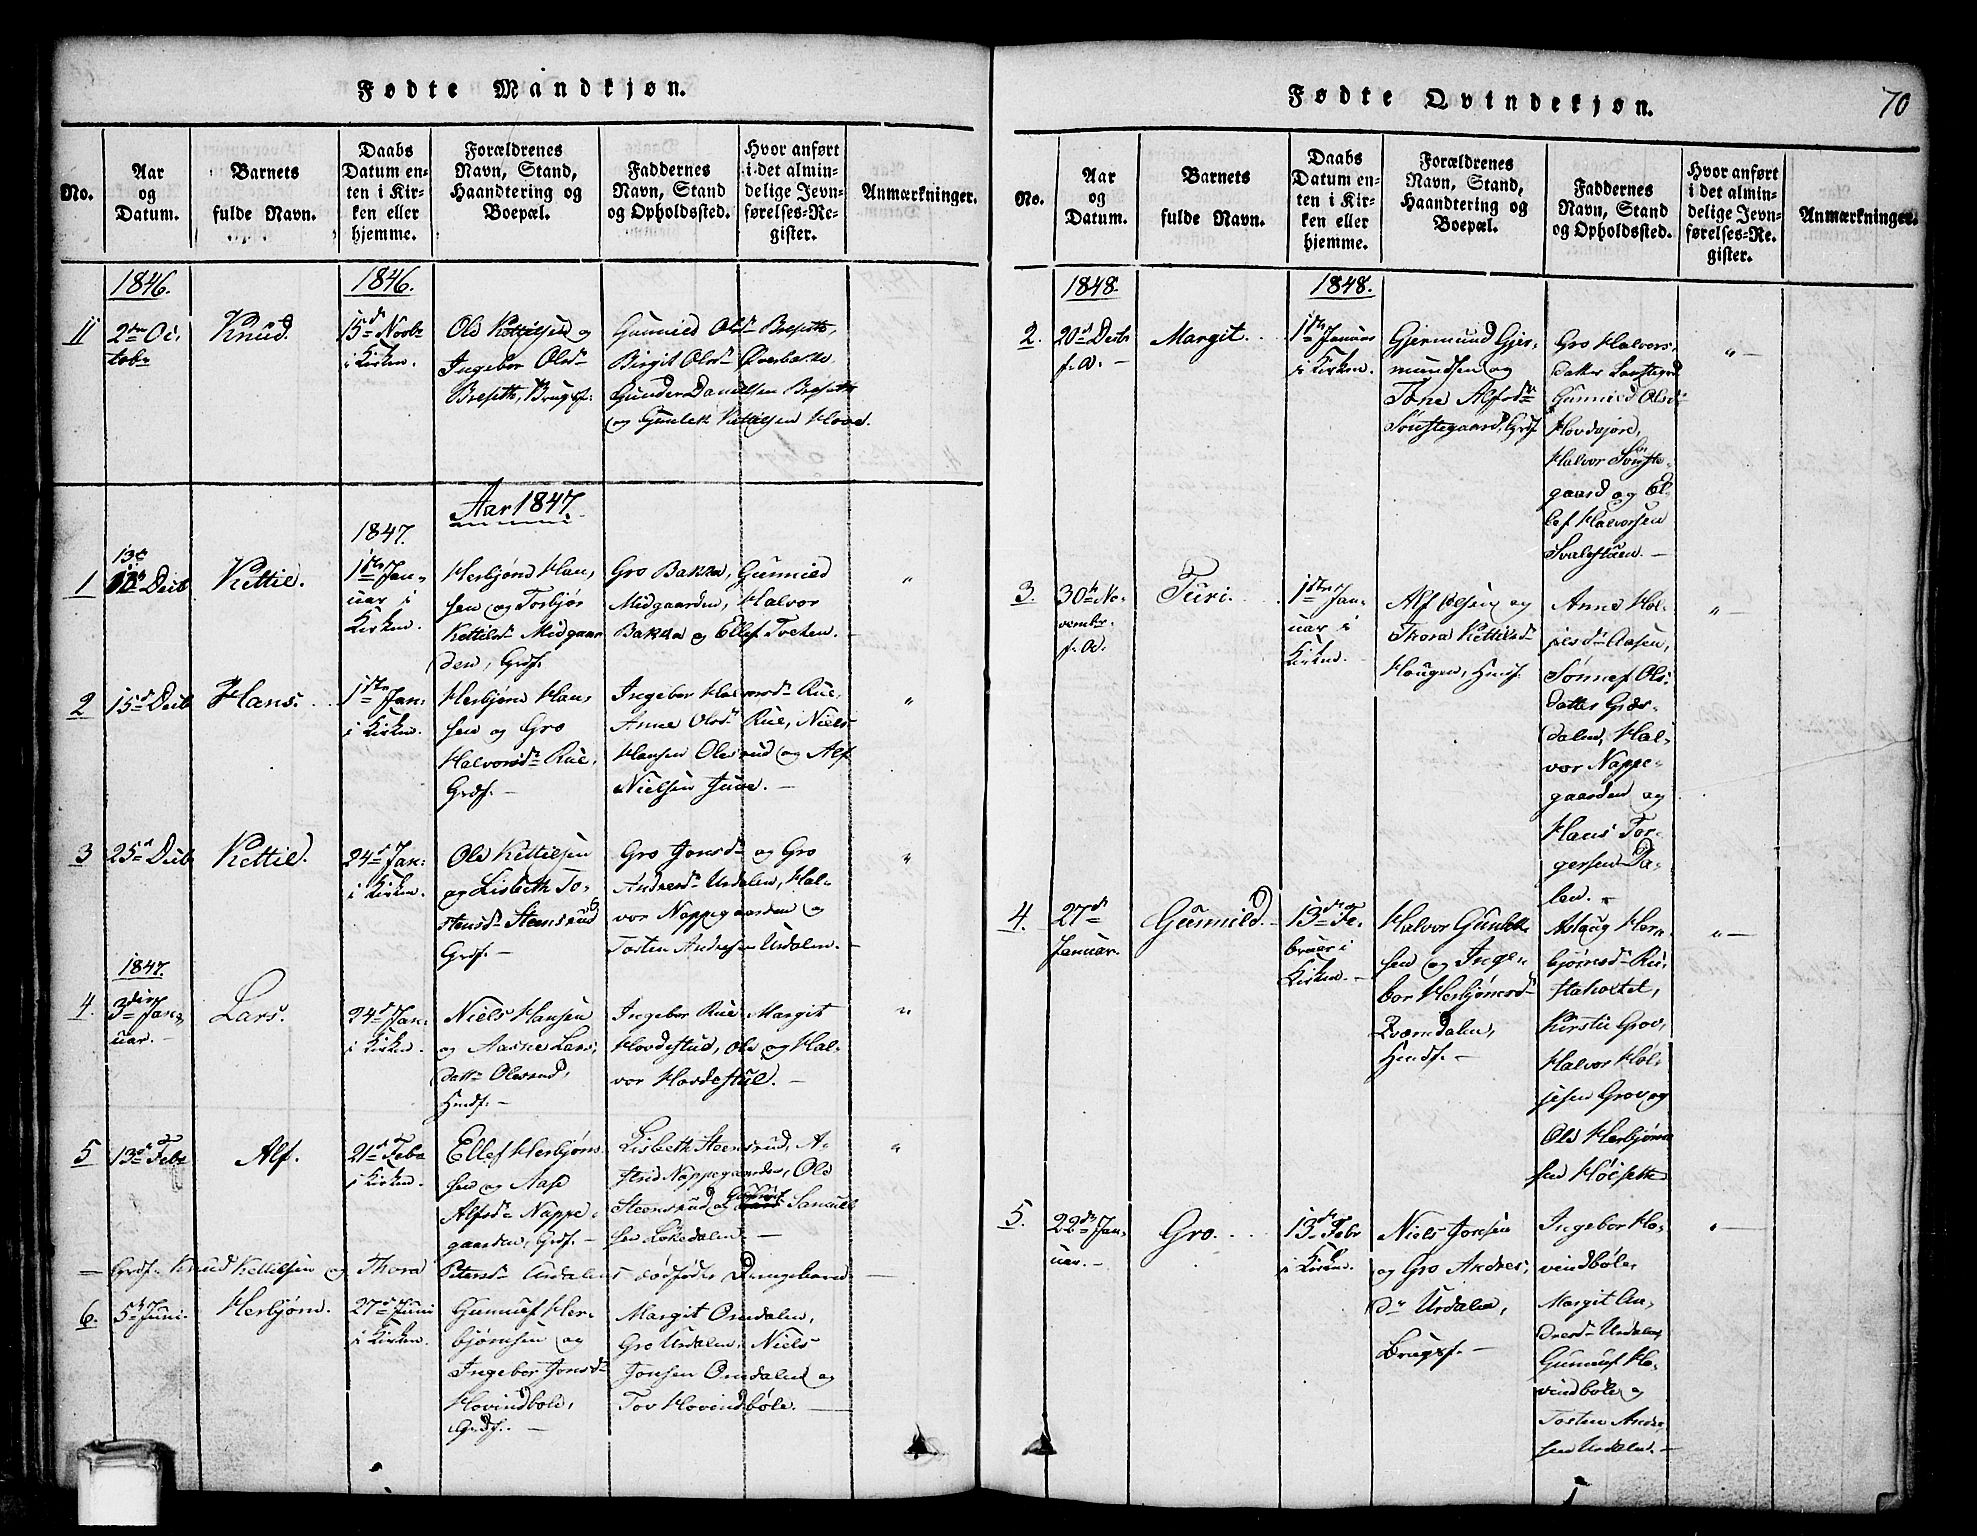 Fødte Mandkjøn.
No.
Aar
og
Datum.
Barnets
fulde Navn.
Daabs
Datum en-
ten i Kir-
ken eller
hjemme.
Forældrenes
Navn, Stand,
Haandtering og
Boepæl.
Faddernes
Navn, Stand
og Opholdssted.
Hvor anført
i det almin-
delige Jevn-
førelses-Re-
gister.
Anmærkninger.
1846.
1846.
11
2den Oc-
tobr
Knud.
15de Novbr
i Kirken.
Ole Kittilsen og
Ingebor Olsdr
Bresette, Brugsf.
Gunnild Olsdr Bresette,
Birgit Olsdr Øverbakke
Gunder Danielsen Bresette
og Gunlek Kittilsen Hove.
Aar 1847.
1847.
1
13de
Decb
Kittil.
1ste Jan-
uar i
Kirken.
Herbjørn Han-
sen og Torbjør
Kittilsdr Midgaar
den, Grdf.
Gro Bakka, Gunnild
Midgaarden, Halvor
Bakka og Ellef Tveten.
"
2
15de Decb
Hans.
1ste Jan.
i Kirken.
Herbjørn Han-
sen og Gro
Halvorsdr Rue,
Grdf. —
Ingebor Halvorsdr Rue,
Anne Olsdr Rue, Niels
Hansen Olesrud og Alf
Nielsen Juve. —
"
3
25de Decb
Kittil.
24de Jan.
i Kirken.
Ole Kittilsen
og Lisbeth To-
stensdr Steensrud
Grdf. —
Gro Jonsdr og Gro
Andresdr Urdalen, Hal-
vor Nappegaarden og
Tosten Andresen Urdalen. —
"
1847.
4.
3die Jan-
uar. —
Lars.
24de Jan.
i Kirken.
Niels Hansen
og Aasne Lars-
datr Olesrud,
Huusf. —
Ingebor Rue, Margit
Hovdestul, Ole og Hal-
vor Hovdestul. —
"
5
13de Febr
Alf.
21de Febr
i Kirken.
Ellef Herbjøns
sen og Aase
Alfsdr Nappe-
gaarden, Grdf. —
Lisbeth Steensrud, A-
strid Nappegaarden, Ole
Steensrud og Samuel
sen Løkedalen. —
"
— Grdf. Knud Kittilsen og Thora Petersdr Urdalens dødfødte Drengebarn. —
6.
5te Juni.
Herbjørn.
27de Juni
i Kirken.
Gunnuf Her-
bjørnsen og
Ingebor Jonsdr
Hovindbole,
Grdf. —
Margit Omdalen,
Gro Urdalen, Niels
Jonsen Omdalen og
Tov Hovindbøle. —
Fødte Qvindekjøn.
70
No.
Aar
og
Datum.
Barnets
fulde Navn.
Daabs
Datum en-
ten i Kir-
ken eller
hjemme.
Forældrenes
Navn, Stand,
Haandtering og
Boepæl.
Faddernes
Navn, Stand
og Opholdssted.
Hvor anført
i det almin-
delige Jevn-
førelses-Re-
gister.
Anmærkninger.
1848
1848.
2.
20de Decbr
f. A. —
Margit.
1ste Januar
i Kirken.
Gjermund Gjer-
mundsen og
Tone Alfsdr
Sønstegaard, Grdf
Gro Halvors-
datter Sønstegrd
Gunnild Olsdr
Hovdesjord,
Halvor Sønste-
gaard og El-
lef Halvorsen
Svalestuen. —
" —
3.
30te No-
vembr.
f. A.
Turi.
1ste Jan-
uar i
Kirken.
Alf Olsen og
Thora Kittilsdr
Haugen, Huusf.
Anne Hol-
jesdr Aasen,
Sønnef Ols-
datter Græs-
dalen, Hal-
vor Nappe-
gaarden og
Hans Tor-
gersen Da-
len. —
" —
4.
27de
Januar.
Gunnild.
13de Fe-
bruar i
Kirken. —
Halvor Gunlek-
sen og Inge-
bor Herbjørnsdr
Qværndalen,
Huusf. —
Aslaug Her-
bjørnsdr Ru-
staholtet,
Kirstie Grov,
Halvor Hol-
jesen Grov og
Ole Herbjørn
sen Høisette
" —
5.
22de Jan-
uar. —
Gro.
13de Febr
i Kirken.
Niels Jonsen
og Gro Andres-
dr Urdalen,
Brugsf. —
Ingebor Ho-
vindbøle,
Margit An-
dresdr Urdalen,
Gunnuf Ho-
vindbøle og
Tosten Andre-
sen Urdalen. —
" —